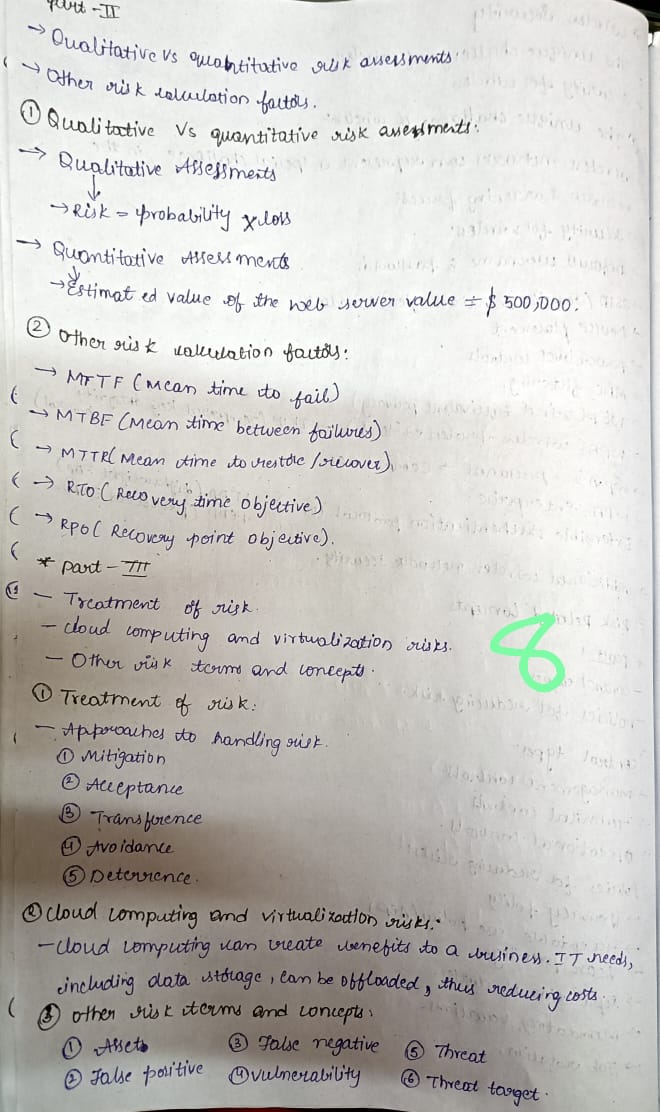 Part - II
→ Qualitative vs quantitative risk assessments.
→ Other risk calculation factors.
① Qualitative Vs quantitative risk assessments:
→ Qualitative Assessments
↓
→ Risk = probability x loss
→ Quantitative Assessments
↓
→ Estimated value of the web server value = $ 500,000:
② Other risk calculation factors:
→ MTTF (Mean time to fail)
→ MTBF (Mean time between failures)
→ MTTR (Mean time to restore / recover)
→ RTO (Recovery time objective)
→ RPO (Recovery point objective).
* part - III
- Treatment of risk.
- cloud computing and virtualization risks.
- Other risk terms and concepts.
8
① Treatment of risk:
- Approaches to handling risk.
① Mitigation
② Acceptance
③ Transference
④ Avoidance
⑤ Deterrence.
② cloud computing and virtualization risks.
- cloud computing can create benefits to a business. IT needs,
including data storage, can be offloaded, thus reducing costs.
③ other risk terms and concepts:
① Assets ③ False negative ⑤ Threat
② False positive ④ vulnerability ⑥ Threat target.